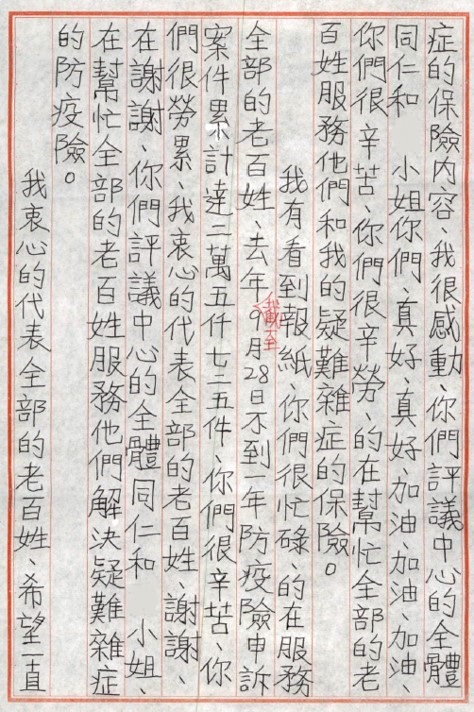 症的保險內容、我很感動、你們評議中心的全體
同仁和 小姐你們、真好、真好、加油、加油、加油、
你們很辛苦、你們很辛勞、的在幫忙全部的老
百姓服務他們和我的疑難雜症的保險。
我有看到報紙、你們很忙碌、的在服務
全部的老百姓、去年截至9月28日不到一年防疫險申訴
案件累計達二萬五仟七二五件、你們很辛苦、你
們很勞累、我衷心的代表全部的老百姓、謝謝、
在謝謝、你們評議中心的全體同仁和 小姐、
在幫忙全部的老百姓服務他們解決疑難雜症
的防疫險。
我衷心的代表全部的老百姓、希望一直